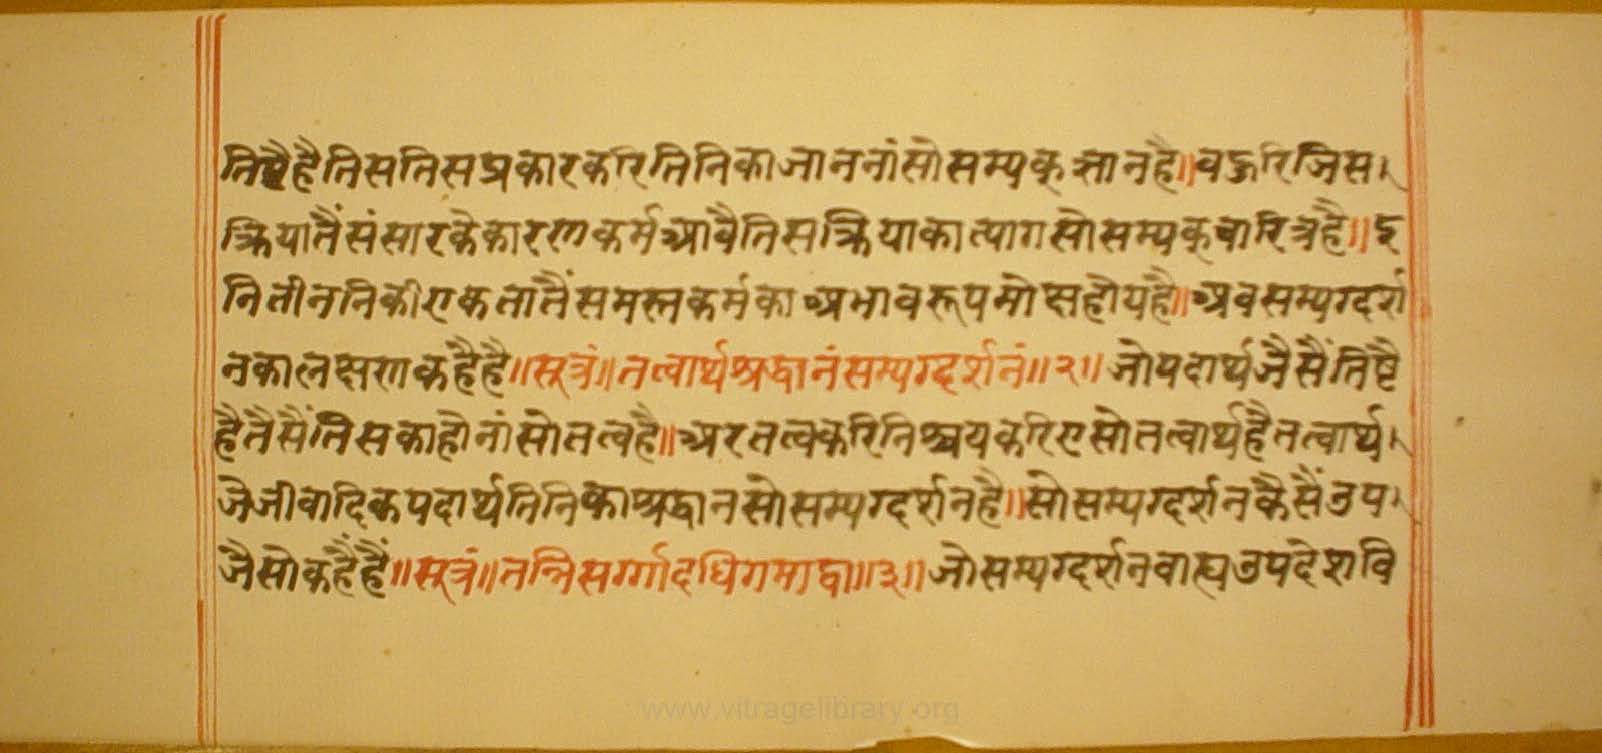 तिष्टै है तिस तिस प्रकार करि तिनि का जाननां सो सम्यक् ज्ञान है॥ बहुरि जिस
क्रिया तैं संसार के कारण कर्म आवै तिस क्रिया का त्याग सो सम्यक् चारित्र है॥ इ
नि तीननि की एकता तैं समस्त कर्म का अभाव रूप मोक्ष होय है॥ अब सम्यग्दर्श
न का लक्षण कहै है॥ सूत्रं॥ तत्वार्थश्रद्धानं सम्यग्दर्शनं॥२॥ जो पदार्थ जैसैं तिष्टै
है तैसैं तिस का होनां सो तत्व है॥ अर तत्व करि निश्चय करिए सो तत्वार्थ है तत्वार्थ
जे जीवादिक पदार्थ तिनि का श्रद्धान सो सम्यग्दर्शन है॥ सो सम्यग्दर्शन कैसैं उप
जै सो कहैं हैं॥ सूत्रं॥ तन्निसर्ग्गादधिगमाद्वा॥३॥ जो सम्यग्दर्शन वाह्य उपदेश वि
www.vitragelibrary.org